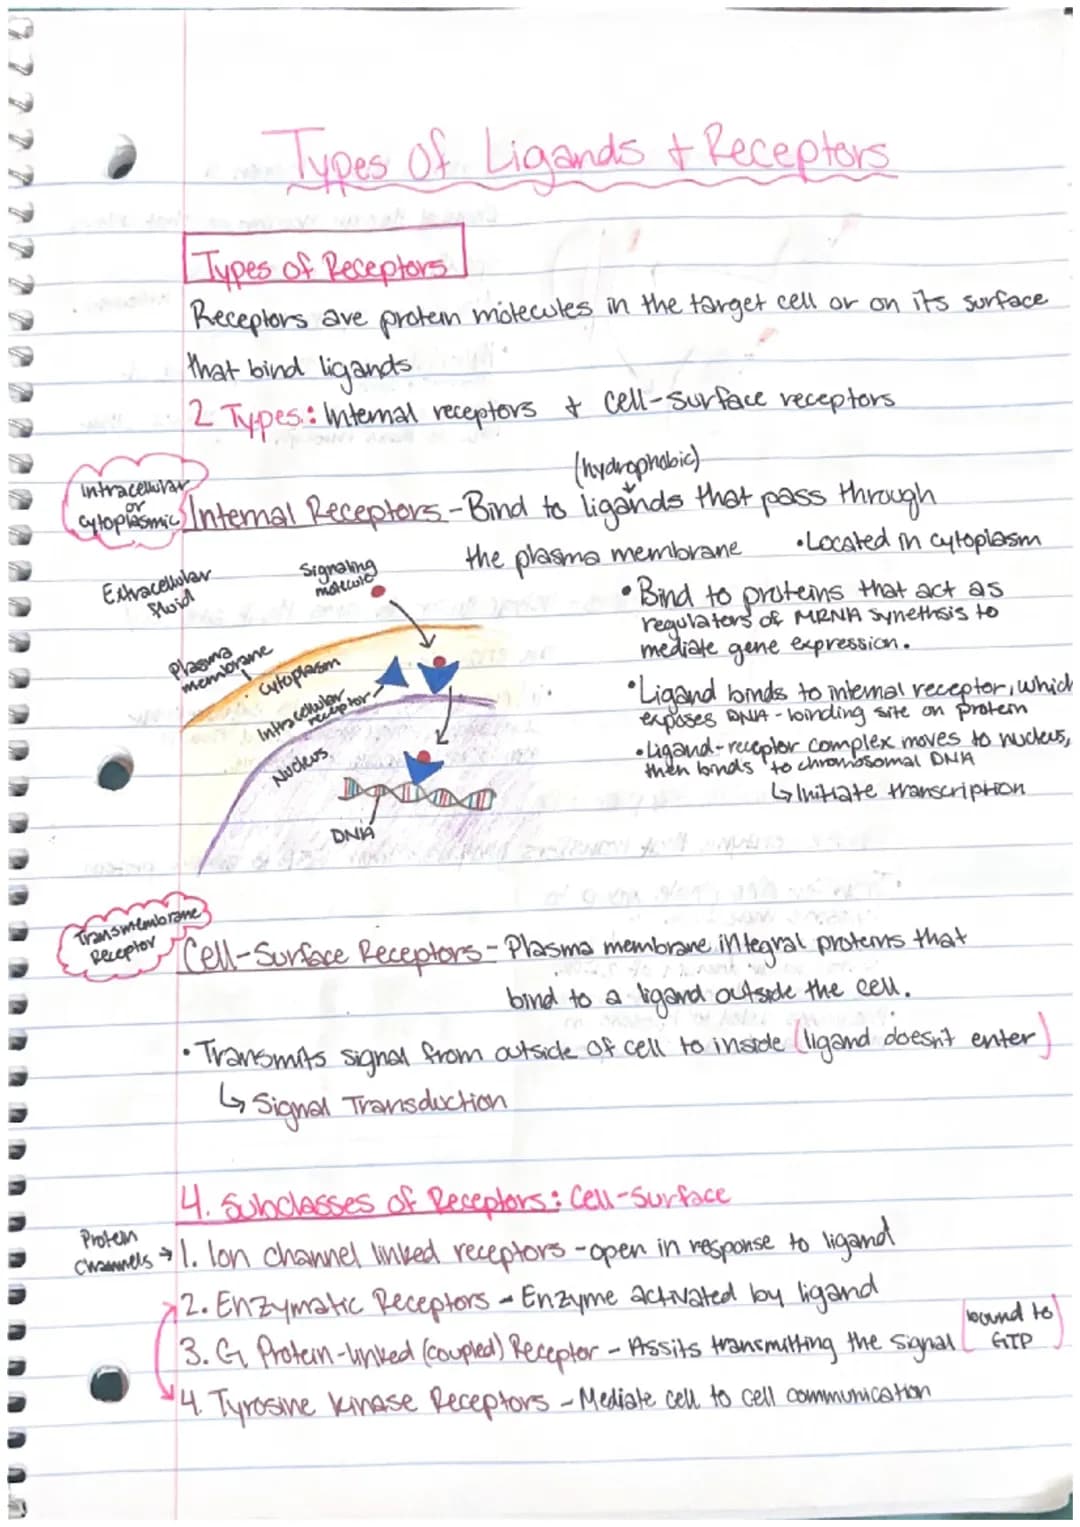 Types Of Ligands + Receptors
Types of Receptors
Receptors are protein molecules in the target cell or on its surface
that bind ligands
2 Types: Internal receptors + cell-surface receptors
(hydrophobic)
Intracellular
or
cytoplasmic
Internal Receptors - Bind to ligands that pass through
the plasma membrane
•Located in cytoplasm
Extracellular
fluid
Signaling
molecule
Plasma
membrane
Cytoplasm
Intracellular
receptor
Nucleus
DNA
•Bind to proteins that act as
regulators of mRNA synethsis to
mediate gene expression.
•Ligand binds to internal receptor, which
exposes DNA-binding site on protein
•Ligand-receptor complex moves to nucleus,
then binds to chromosomal DNA
↳ Initiate transcription
Transmembrane
Receptor
Cell-Surface Receptors - Plasma membrane integral proteins that
bind to a ligand outside the cell.
•Transmits signal from outside of cell to inside (ligand doesn't enter)
↳ Signal Transduction
4. Subclasses of Receptors: Cell-Surface
Protein
channels → 1. Ion channel linked receptors - open in response to ligand
2. Enzymatic Receptors - Enzyme activated by ligand
3. G Protein-linked (coupled) Receptor - Assits transmitting the signal (bound to
GTP)
4. Tyrosine kinase Receptors - Mediate cell to cell communication